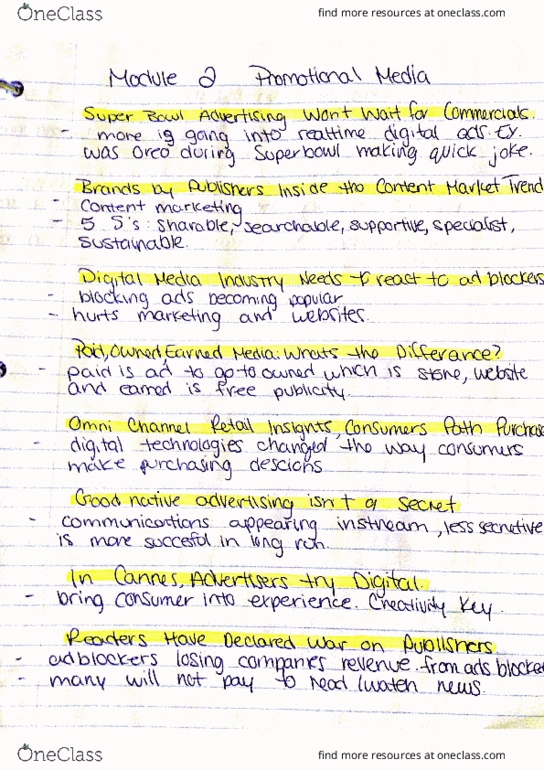 OneClass
find more resources at oneclass.com
Module 2 Promotional Media
Super Bowl Advertising Won't Wait for Commercials.
- more is gang into realtime digital ads. Ex.
was Oreo during Superbowl making quick joke.
Brands by Publishers Inside the Content Market Trend
- Content marketing
- 5 S's: sharable, searchable, supportive, specialist,
sustainable.
Digital Media Industry Needs to react to ad blockers
- blocking ads becoming popular
- hurts marketing and websites.
Paid, Owned, Earned Media: Whats the Difference?
- paid is ad to go to owned which is store, website
and earned is free publicity.
Omni Channel Retail Insights, Consumers Path Purchase
- digital technologies changed the way consumers
make purchasing descions
Good native advertising isn't a secret
- communications appearing instream, less secretive
is more succesful in long run.
In Cannes, Advertisers try Digital.
- bring consumer into experience. Creativity key.
Readers Have Declared War on Publishers
- adblockers losing companies revenue from ads blocked
- many will not pay to read/watch news.
OneClass
find more resources at oneclass.com